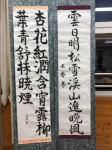 雲日明松雪渓山進晩風
杏花紅潤含宵露柳
葉青舒抹暁煙